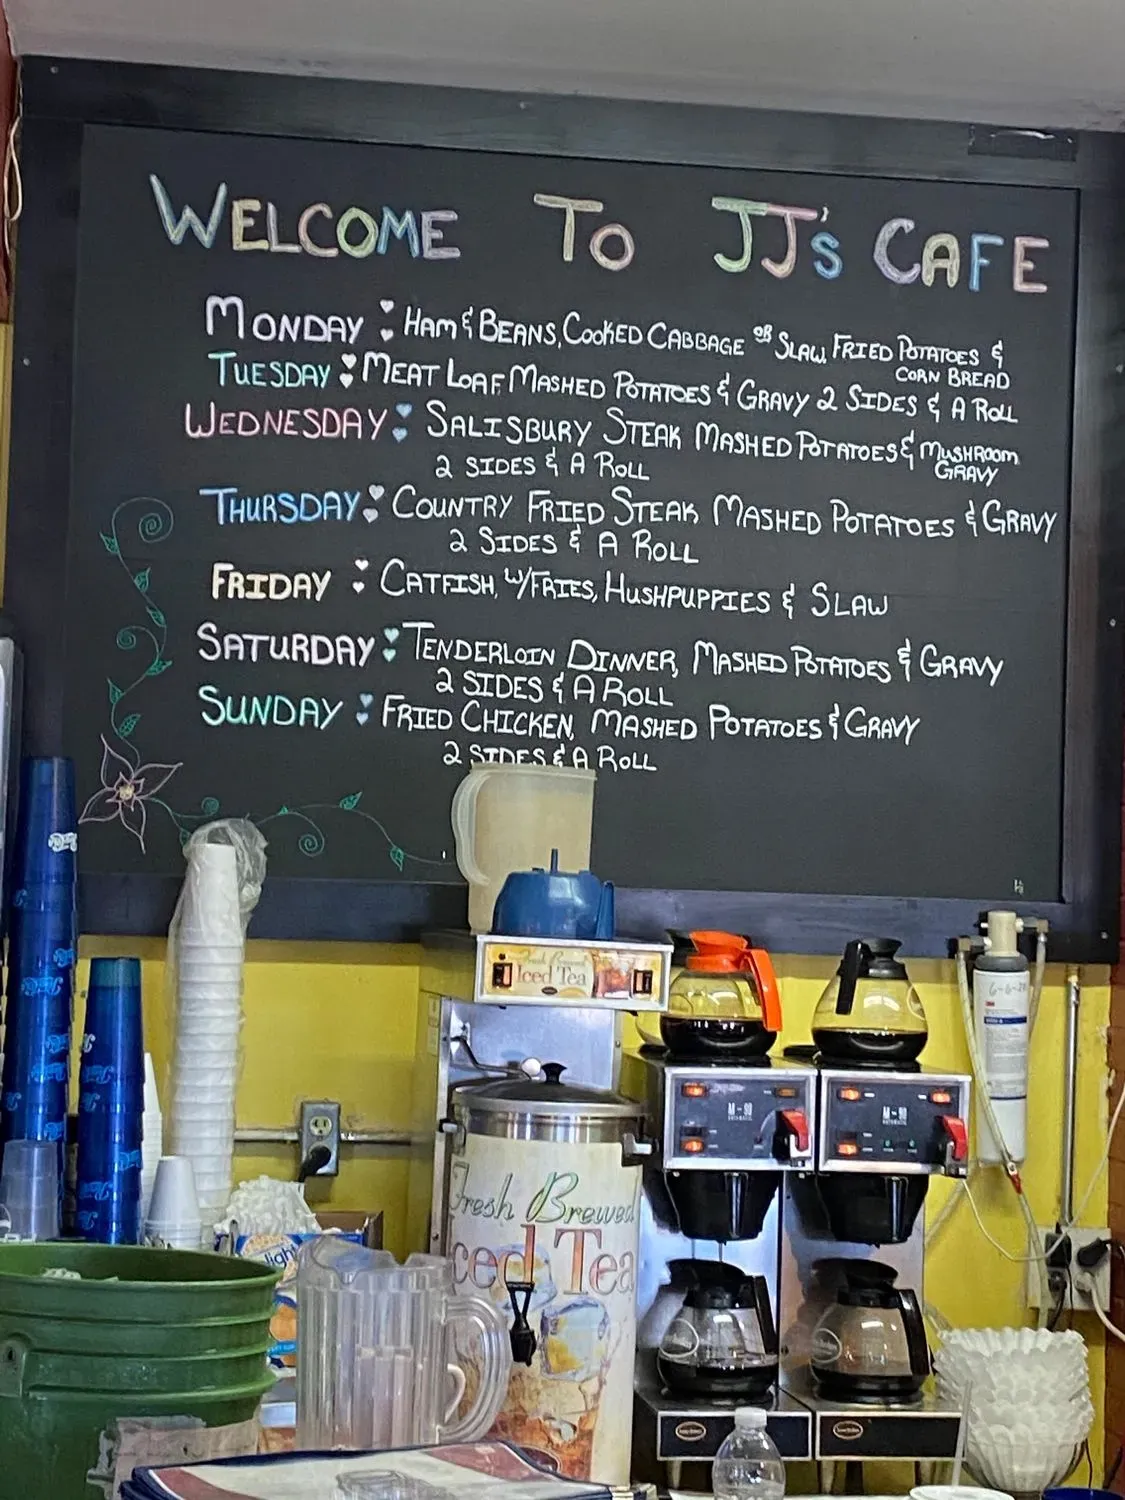 WELCOME TO JJ's CAFE
MONDAY : HAM & BEANS, COOKED CABBAGE OR SLAW, FRIED POTATOES &
CORN BREAD
TUESDAY : MEAT LOAF, MASHED POTATOES & GRAVY 2 SIDES & A ROLL
WEDNESDAY : SALISBURY STEAK MASHED POTATOES & MUSHROOM
GRAVY
2 SIDES & A ROLL
THURSDAY : COUNTRY FRIED STEAK MASHED POTATOES & GRAVY
2 SIDES & A ROLL
FRIDAY : CATFISH, W/FRIES, HUSHPUPPIES & SLAW
SATURDAY : TENDERLOIN DINNER, MASHED POTATOES & GRAVY
2 SIDES & A ROLL
SUNDAY : FRIED CHICKEN, MASHED POTATOES & GRAVY
2 SIDES & A ROLL
Fresh Brewed
Iced Tea
Fresh Brewed
Iced Tea